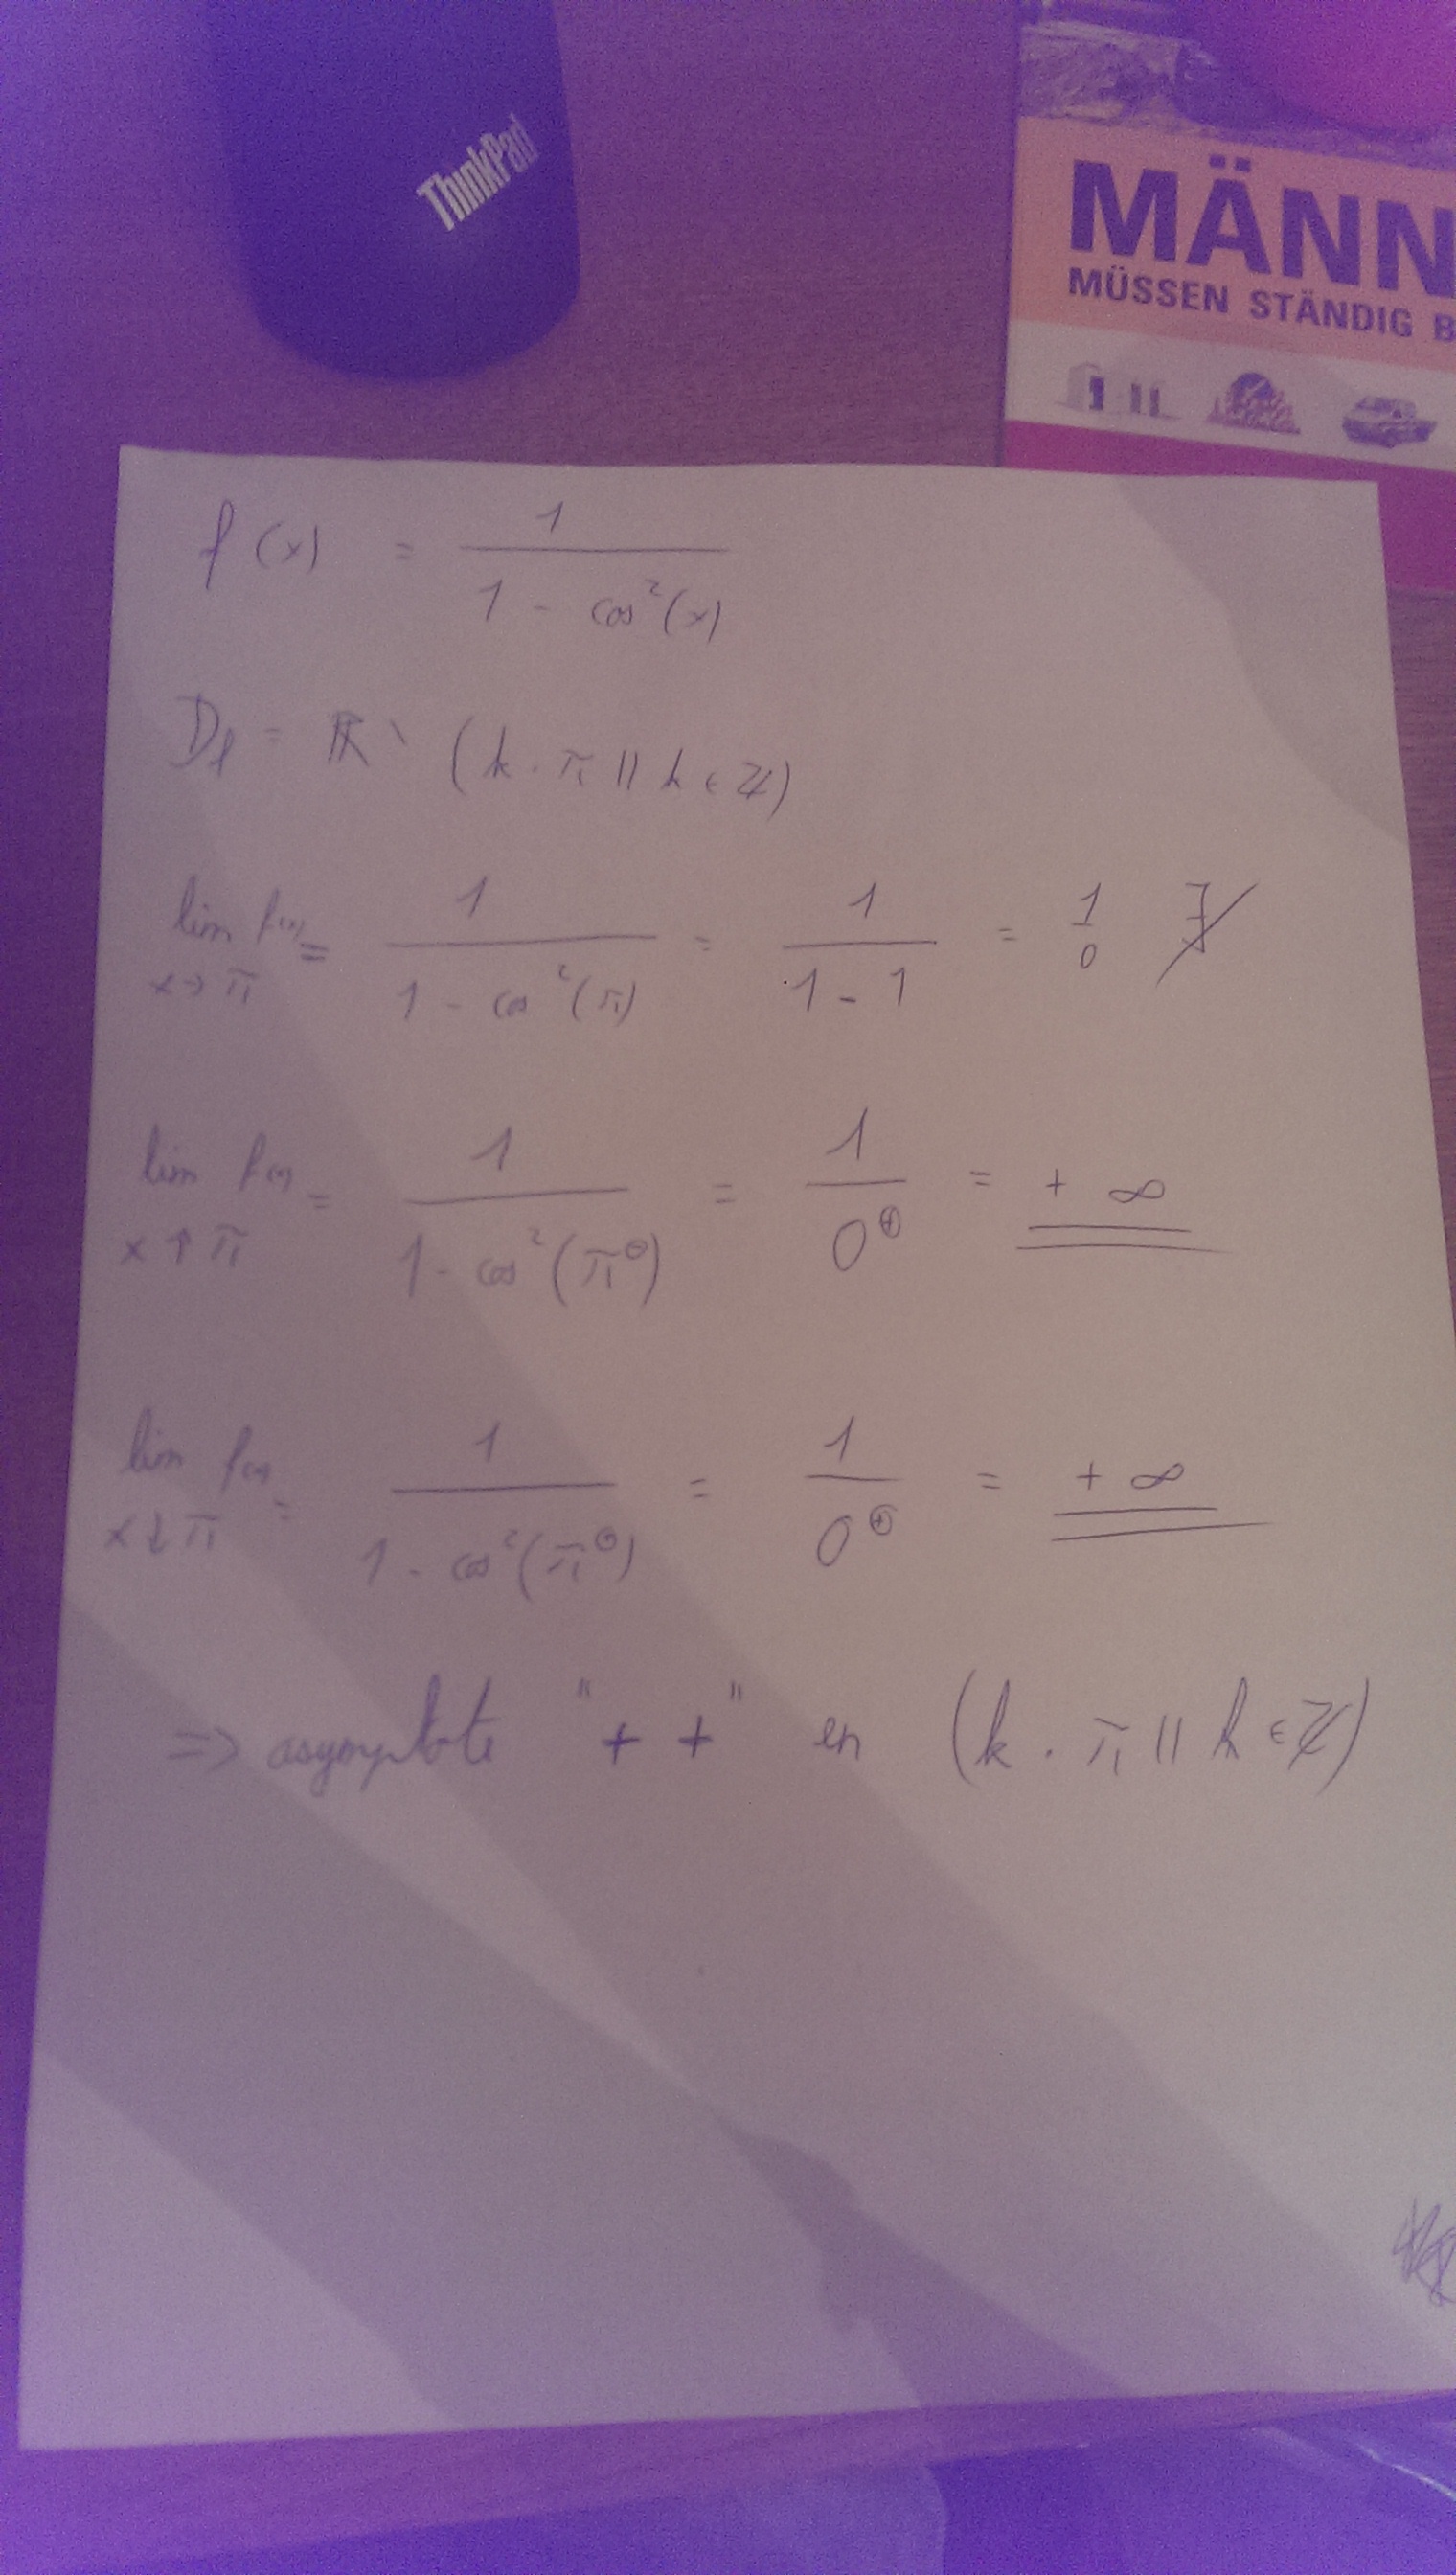 ThinkPad
MÄNN
MÜSSEN STÄNDIG B
f(x) = 1 / (1 - cos²(x))
Df = ℝ \ (k · π || k ∈ ℤ)
lim f(x) x→π = 1 / (1 - cos²(π)) = 1 / (1 - 1) = 1/0 ∄
lim f(x) x↑π = 1 / (1 - cos²(π⊖)) = 1 / 0⊕ = + ∞
lim f(x) x↓π = 1 / (1 - cos²(π⊕)) = 1 / 0⊕ = + ∞
=> asymptote "+ +" en (k · π || k ∈ ℤ)